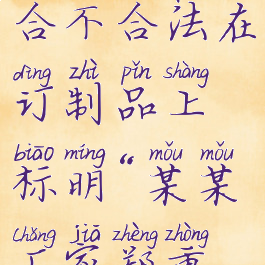 合不合法在
dìng zhì pǐn shàng
订制品上
biāo míng “ mǒu mǒu
标明“某某
chǎng jiā zhèng zhòng
厂家郑重